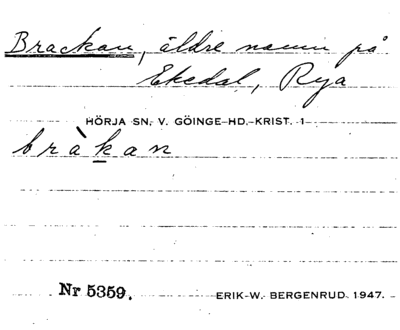 Brackan, äldre namn på
Ekedal, Rya
HÖRJA SN, V. GÖINGE HD. KRIST. 1
bràkan
Nr 5359.
ERIK W. BERGENRUD 1947.